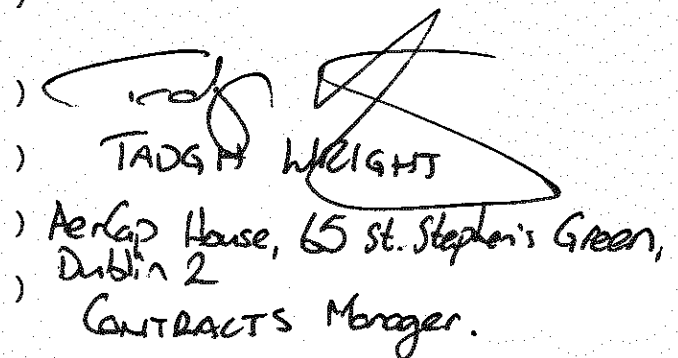 )
)
) TADGH WRIGHT
) AerCap House, 65 St. Stephen's Green,
Dublin 2
)
CONTRACTS Manager.